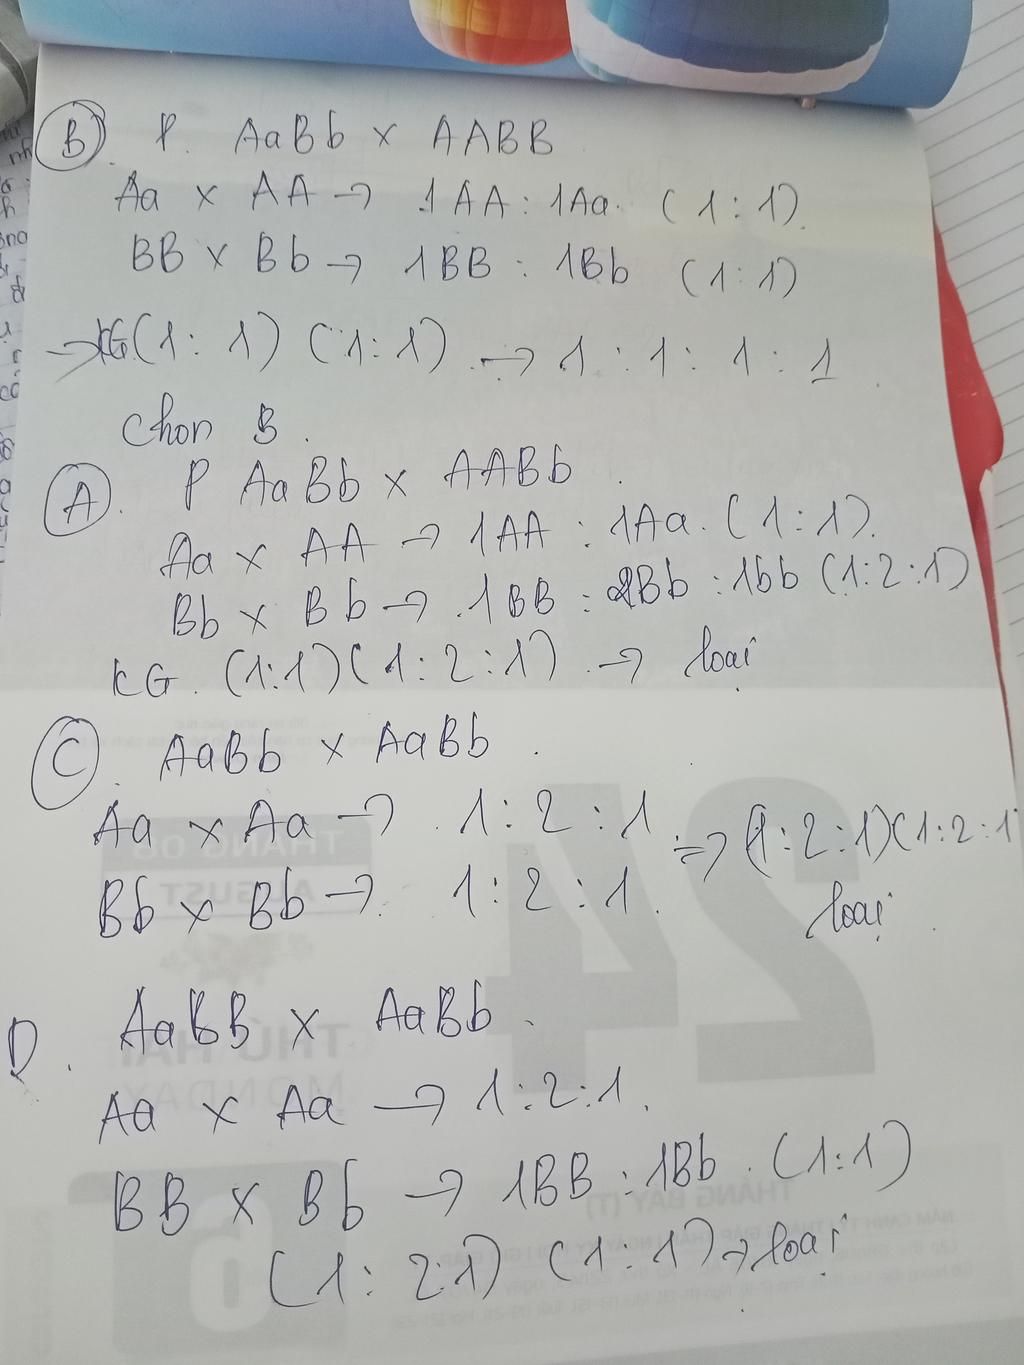 B. P. AaBb x AABB
Aa x AA → 1AA : 1Aa. (1:1).
BB x Bb → 1BB : 1Bb (1:1)
→ KG (1:1) (1:1) → 1:1:1:1.
Chọn B.
A. P AaBb x AABb.
Aa x AA → 1AA : 1Aa. (1:1).
Bb x Bb → 1BB : 2Bb : 1bb (1:2:1)
KG. (1:1)(1:2:1). → loại
C. AaBb x AaBb.
Aa x Aa → 1:2:1 => (1:2:1)(1:2:1
Bb x Bb → 1:2:1. loại.
D. AaBB x AaBb.
Aa x Aa → 1:2:1.
BB x Bb → 1BB : 1Bb. (1:1)
(1:2:1) (1:1) → loại
24
THÁNG 08
AUGUST
THỨ HAI
MONDAY
THÁNG BẢY (T)
6